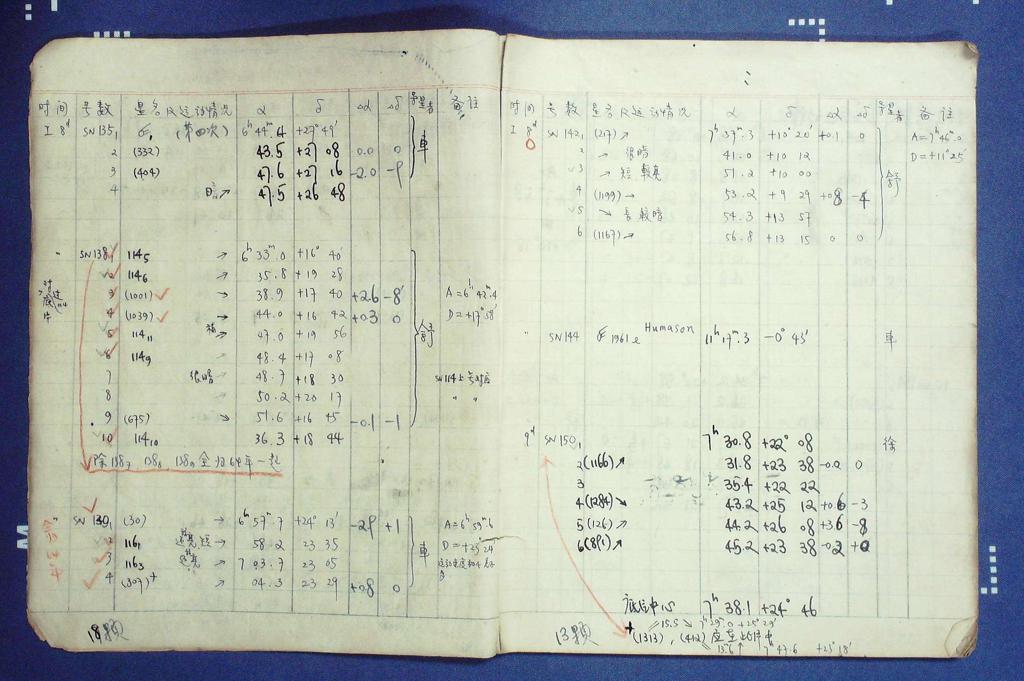 时间 号数 星名及运动情况 α δ Δα Δδ 寻星者 备注
I 8d SN 135₁ (第四次) 6h 44m.4 +27° 49' 車
2 (332) 43.5 +27 08 0.0 0
3 (404) 47.6 +27 16 -2.0 -9
4 → 47.5 +26 48
" SN138₁ 114₅ → 6h 33m.0 +16° 40' 舒
2 114₆ → 35.8 +19 28
3 (1001) → 38.9 +17 40 +2.6 -8' A=6h 42m.4
4 (1039) → 44.0 +16 42 +0.3 0 D=+17° 58'
5 114₁₁ → 47.0 +19 56
6 114₉ → 48.4 +17 08
7 很暗 48.7 +18 30 SN114上号对应
8 50.2 +20 17 " "
9 (675) → 51.6 +16 45 -0.1 -1
10 114₁₀ 36.3 +18 44
除138₇ 138₈ 138₉全归64年一起
" SN 130₁ (30) → 6h 57m.7 +24° 13' -2.9 +1 車 A=6h 59m.6
2 116₁ 短 → 58.2 23 35 D=+23° 24'
3 116₃ → 7 03.7 23 05
4 (307)+ → 04.3 23 29 +0.8 0
18颗
时间 号数 星名及运动情况 α δ Δα Δδ 寻星者 备注
I 8d SN 142₁ (217) ↗ 7h 37m.3 +10° 20' +0.1 0 舒 A=7h 46m.0
2 → 很暗 41.0 +10 12 D=+11° 25'
3 → 短 較亮 51.2 +10 00
4 (1199) → 53.2 +9 29 +0.8 -4
5 ↘ 長 較暗 54.3 +13 57
6 (1167) → 56.8 +13 15 0 0
" SN 144 1961e Humason 11h 17m.3 -0° 43' 車
9d SN 150₁ 7h 30.8 +22° 08 徐
2 (1166) ↗ 31.8 +23 38 -0.2 0
3 35.4 +22 22
4 (1284) ↘ 43.2 +25 12 +0.6 -3
5 (126) ↗ 44.2 +26 08 +3.6 -8
6 (891) ↗ 45.2 +23 38 -0.2 +0
底片中心 7h 38.1 +24° 46
15.5 ↘ 7h 29m.0 +25° 29'
13颗 (1313), (412) 应在此片中
13.6 ↑ 7h 47.6 +23° 18'